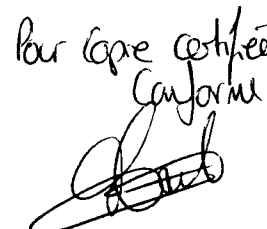 Pour Copie certifiée
Conforme